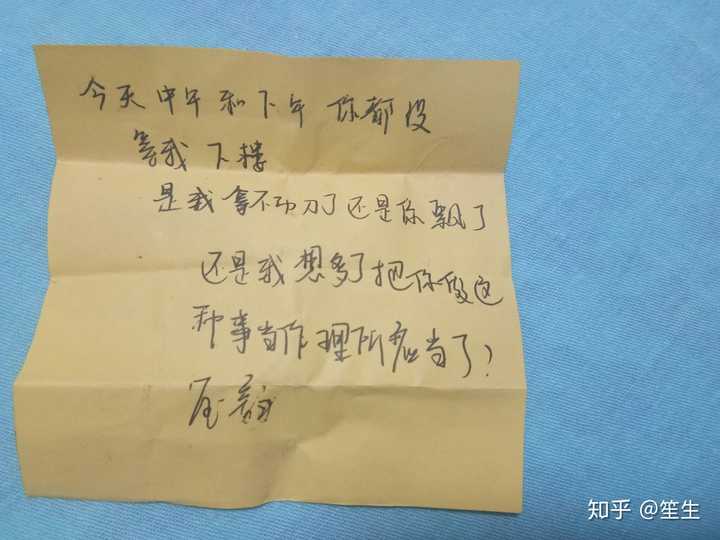 今天中午和下午你都没
等我下楼
是我拿不动刀了还是你飘了
还是我想多了把你做这
种事当作理所应当了?
知乎 @笙生